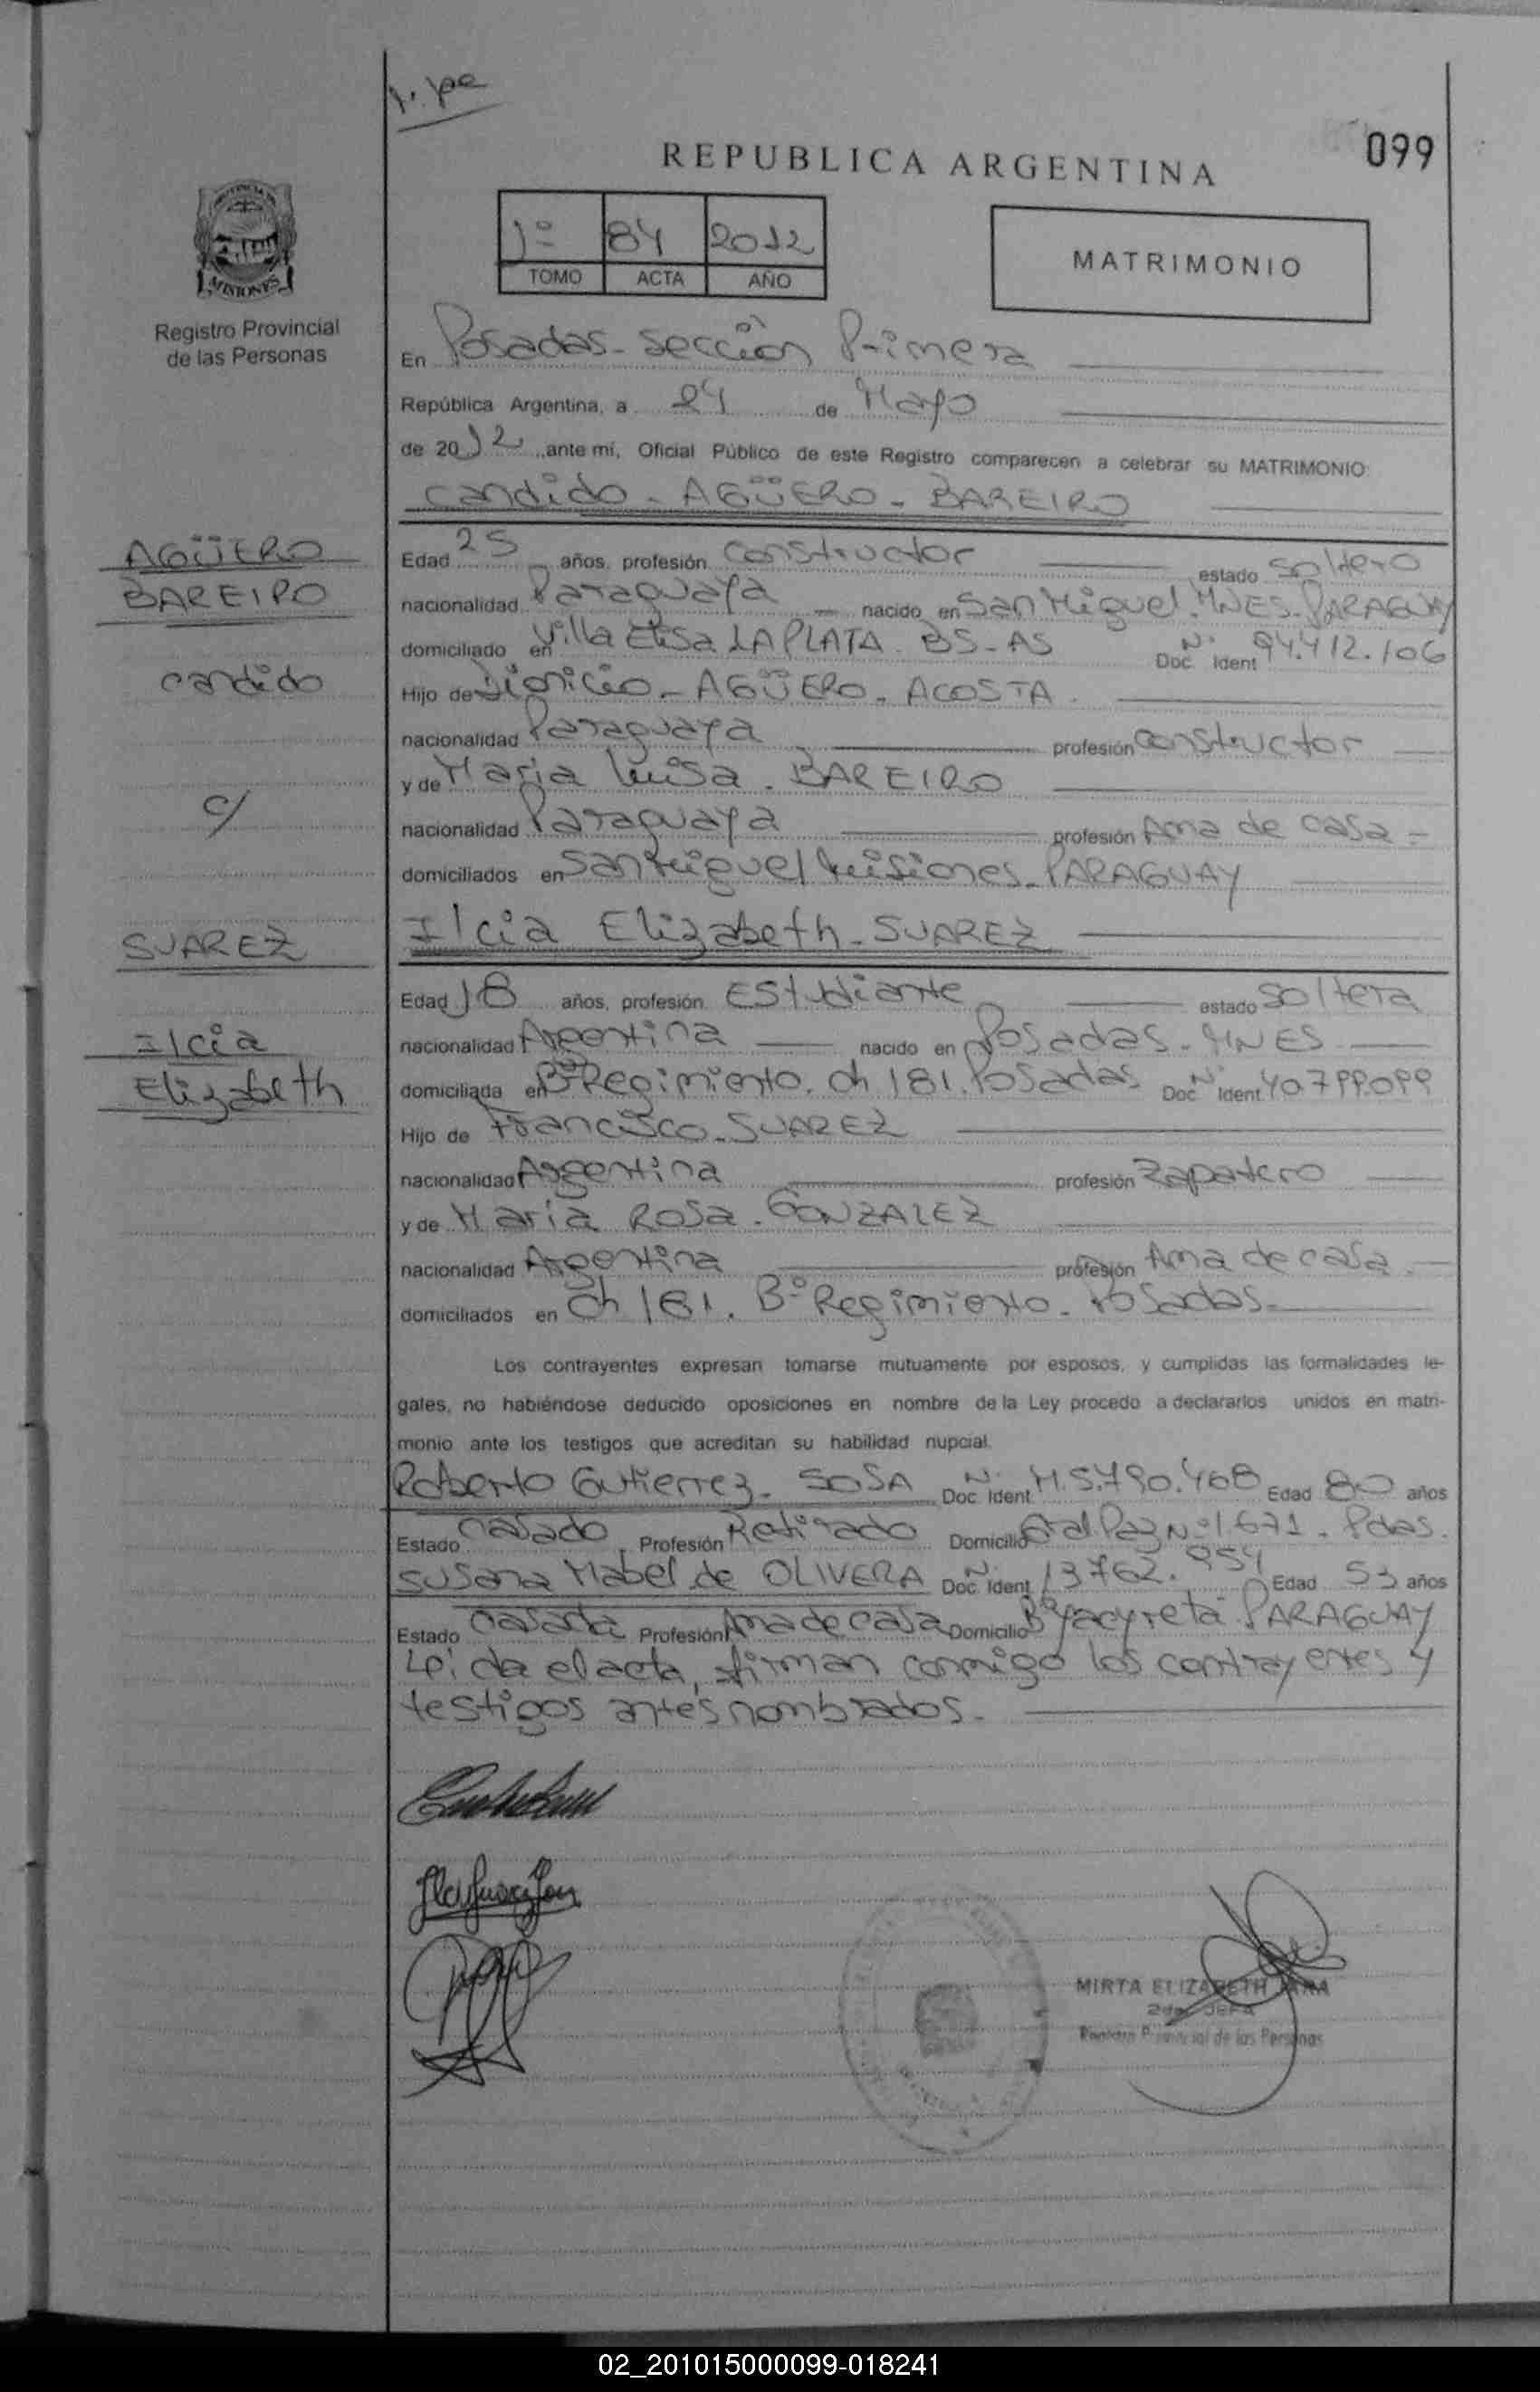 099
REPUBLICA ARGENTINA
1º 84 2012
TOMO ACTA AÑO
MATRIMONIO
MISIONES
Registro Provincial
de las Personas
En Posadas - Sección Primera
República Argentina, a 24 de Mayo
de 2012 ante mí, Oficial Público de este Registro comparecen a celebrar su MATRIMONIO:
Candido - AGÜERO - BAREIRO
AGÜERO
BAREIRO
Candido
c/
SUAREZ
Ilcia
Elizabeth
Edad 25 años, profesión Constructor estado Soltero
nacionalidad Paraguaya nacido en San Miguel. MNES - PARAGUAY
domiciliado en Villa Elisa LA PLATA. BS-AS Doc. Nº Ident 94.412.106
Hijo de Dionicio - AGÜERO - ACOSTA
nacionalidad Paraguaya profesión Constructor
y de Maria Luisa - BAREIRO
nacionalidad Paraguaya profesión Ama de casa
domiciliados en San Miguel Misiones - PARAGUAY
Ilcia Elizabeth - SUAREZ
Edad 18 años, profesión Estudiante estado Soltera
nacionalidad Argentina nacido en Posadas - MNES
domiciliada en Bº Regimiento. Ch 181. Posadas Doc. Nº Ident 40.799.099
Hijo de Francisco - SUAREZ
nacionalidad Argentina profesión Zapatero
y de Maria Rosa - GONZALEZ
nacionalidad Argentina profesión Ama de casa
domiciliados en Ch 181. Bº Regimiento - Posadas
Los contrayentes expresan tomarse mutuamente por esposos, y cumplidas las formalidades le-
gales, no habiéndose deducido oposiciones en nombre de la Ley procedo a declararlos unidos en matri-
monio ante los testigos que acreditan su habilidad nupcial.
Roberto Gutierrez - SOSA Doc. Nº Ident M 5.790.468 Edad 80 años
Estado Casado Profesión Retirado Domicilio Gral Paz Nº 1.671 - Pdas.
Susana Mabel de OLIVERA Doc. Nº Ident 13.762.954 Edad 53 años
Estado Casada Profesión Ama de casa Domicilio Bº Yacyreta - PARAGUAY
Leida el acta, firman conmigo los contrayentes y
testigos antes nombrados.
MIRTA ELIZABETH JARA
JEFA
Registro Provincial de las Personas
02_201015000099-018241